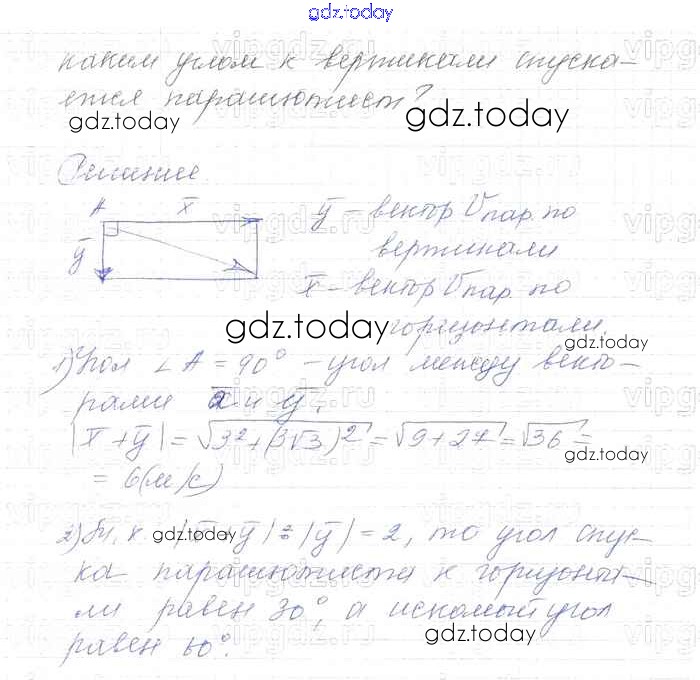 gdz.today
каким углом к вертикали спуска-
ется парашютист?
gdz.today
gdz.today
Решение.
A x̅ y̅ – вектор Vпар. по
y̅ вертикали
x̅ – вектор Vпар. по
gdz.today горизонтали.
gdz.today
1) Угол ∠A = 90° – угол между векто-
рами x̅ и y̅.
|x̅+y̅| = √3²+(3√3)² = √9+27 = √36 =
gdz.today
= 6(м/с)
2) Т. к. |x̅+y̅| : |y̅| = 2, то угол спус-
gdz.today
ка парашютиста к горизонта-
ли равен 30°, а искомый угол
gdz.today
равен 60°.